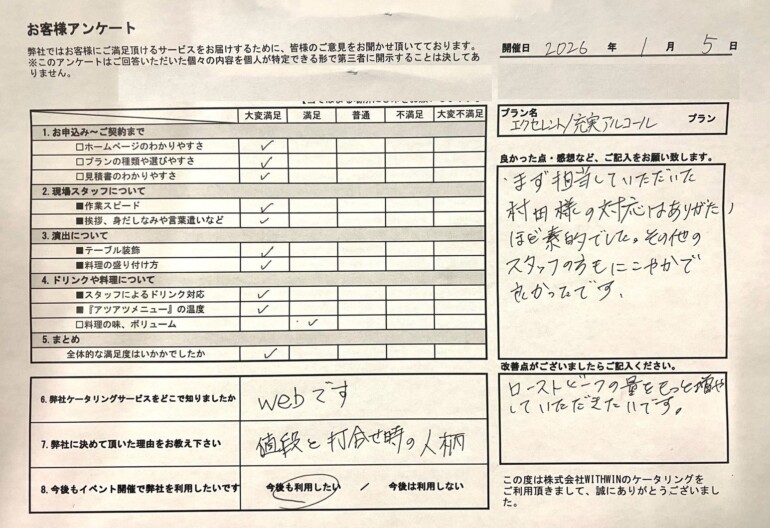 お客様アンケート
弊社ではお客様にご満足頂けるサービスをお届けするために、皆様のご意見をお聞かせ頂いてております。
※このアンケートはご回答いただいた個々の内容を個人が特定できる形で第三者に開示することは決してあ
りません。
開催日 2026 年 1 月 5 日
大変満足 満足 普通 不満足 大変不満足
1. お申込み～ご契約まで
□ホームページのわかりやすさ ✓
□プランの種類や選びやすさ ✓
□見積書のわかりやすさ ✓
2. 現場スタッフについて
■作業スピード ✓
■挨拶、身だしなみや言葉遣いなど ✓
3. 演出について
■テーブル装飾 ✓
■料理の盛り付け方 ✓
4. ドリンクや料理について
■スタッフによるドリンク対応 ✓
■『アツアツメニュー』の温度 ✓
□料理の味、ボリューム ✓
5. まとめ
全体的な満足度はいかかでしたか ✓
6. 弊社ケータリングサービスをどこで知りましたか webです
7. 弊社に決めて頂いた理由をお教え下さい 値段と打合せ時の人柄
8. 今後もイベント開催で弊社を利用したいです 今後も利用したい / 今後は利用しない
プラン名
エクセレント/充実アルコール プラン
良かった点・感想など、ご記入をお願い致します。
・まず担当していただいた
村田様の対応はありがたい
ほど素的でした。その他の
スタッフの方もにこやかで
良かったです。
改善点がございましたらご記入ください。
ローストビーフの量をもっと増や
していただきたいです。
この度は株式会社WITHWINのケータリングを
ご利用頂きまして、誠にありがとうございまし
た。